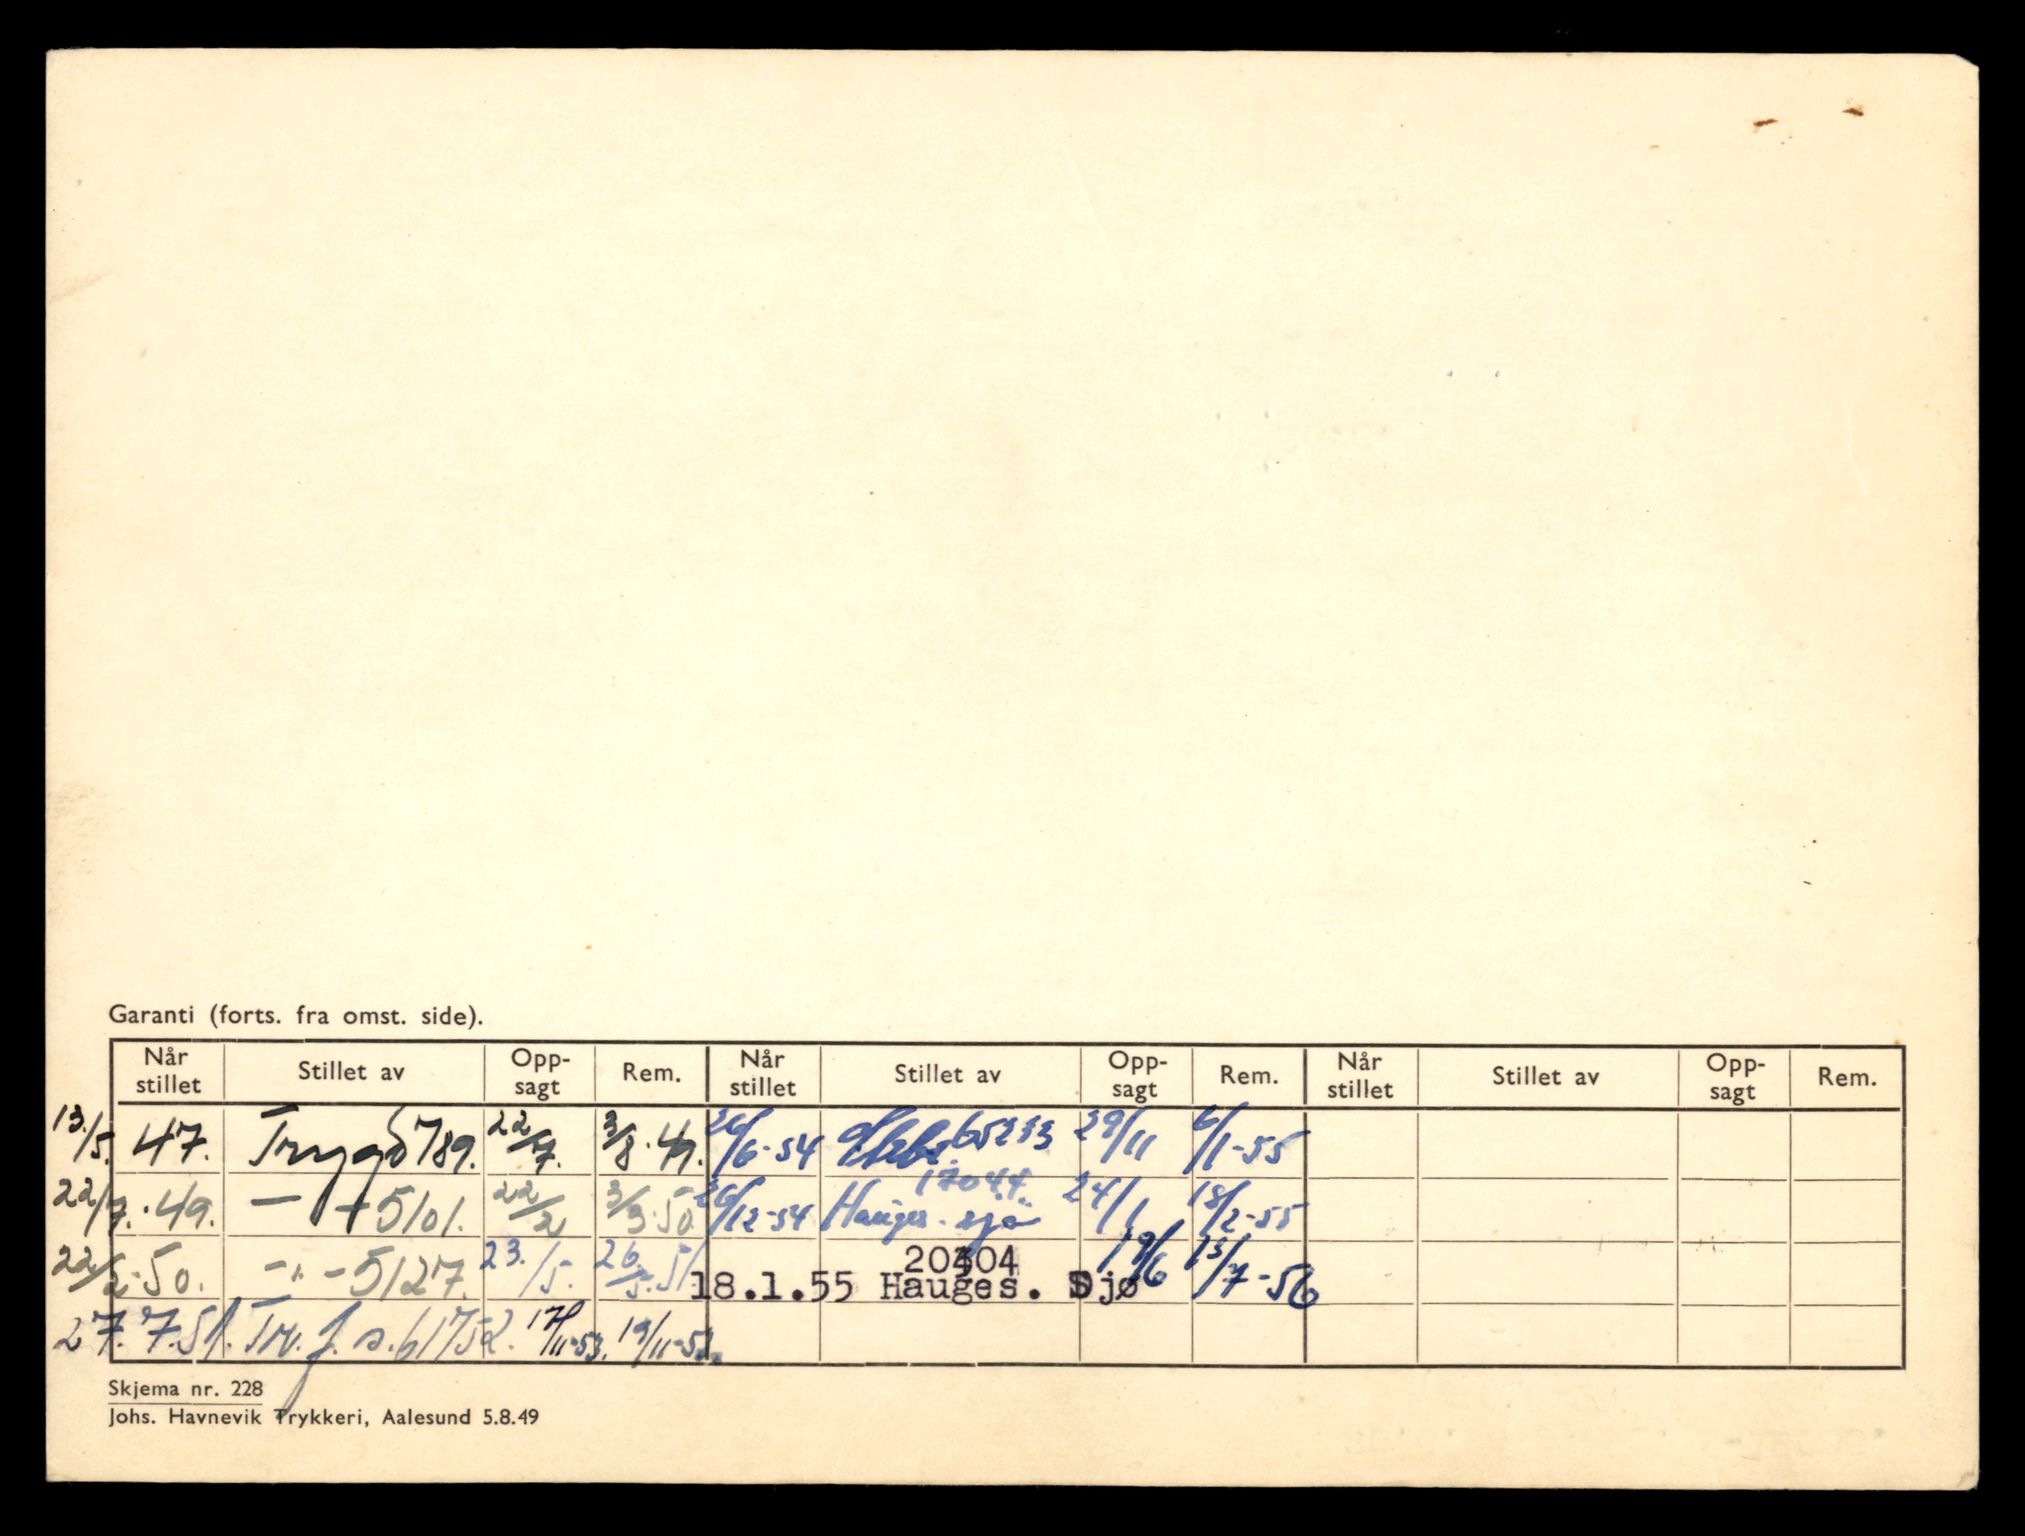 Garanti (forts. fra omst. side).
Når stillet Stillet av Opp-sagt Rem. Når stillet Stillet av Opp-sagt Rem. Når stillet Stillet av Opp-sagt Rem.
13./5. 47. Trygd 789. 22/7. 3/8.49. 26/6-54 65233 29/11 6/1-55
22/7.49. — 5101. 22/2 3/3.50. 20/12-54 Hauges. sjö 17044. 24/1 18/2-55
22/2.50. -"- 5127. 23./5. 26./5.51 18.1.55 Hauges. Sjø 20404 19/6 15/7-56
27.7.51. Tr. f. s. 61752. 17/11-53. 19/11-53.
Skjema nr. 228
Johs. Havnevik Trykkeri, Aalesund 5.8.49